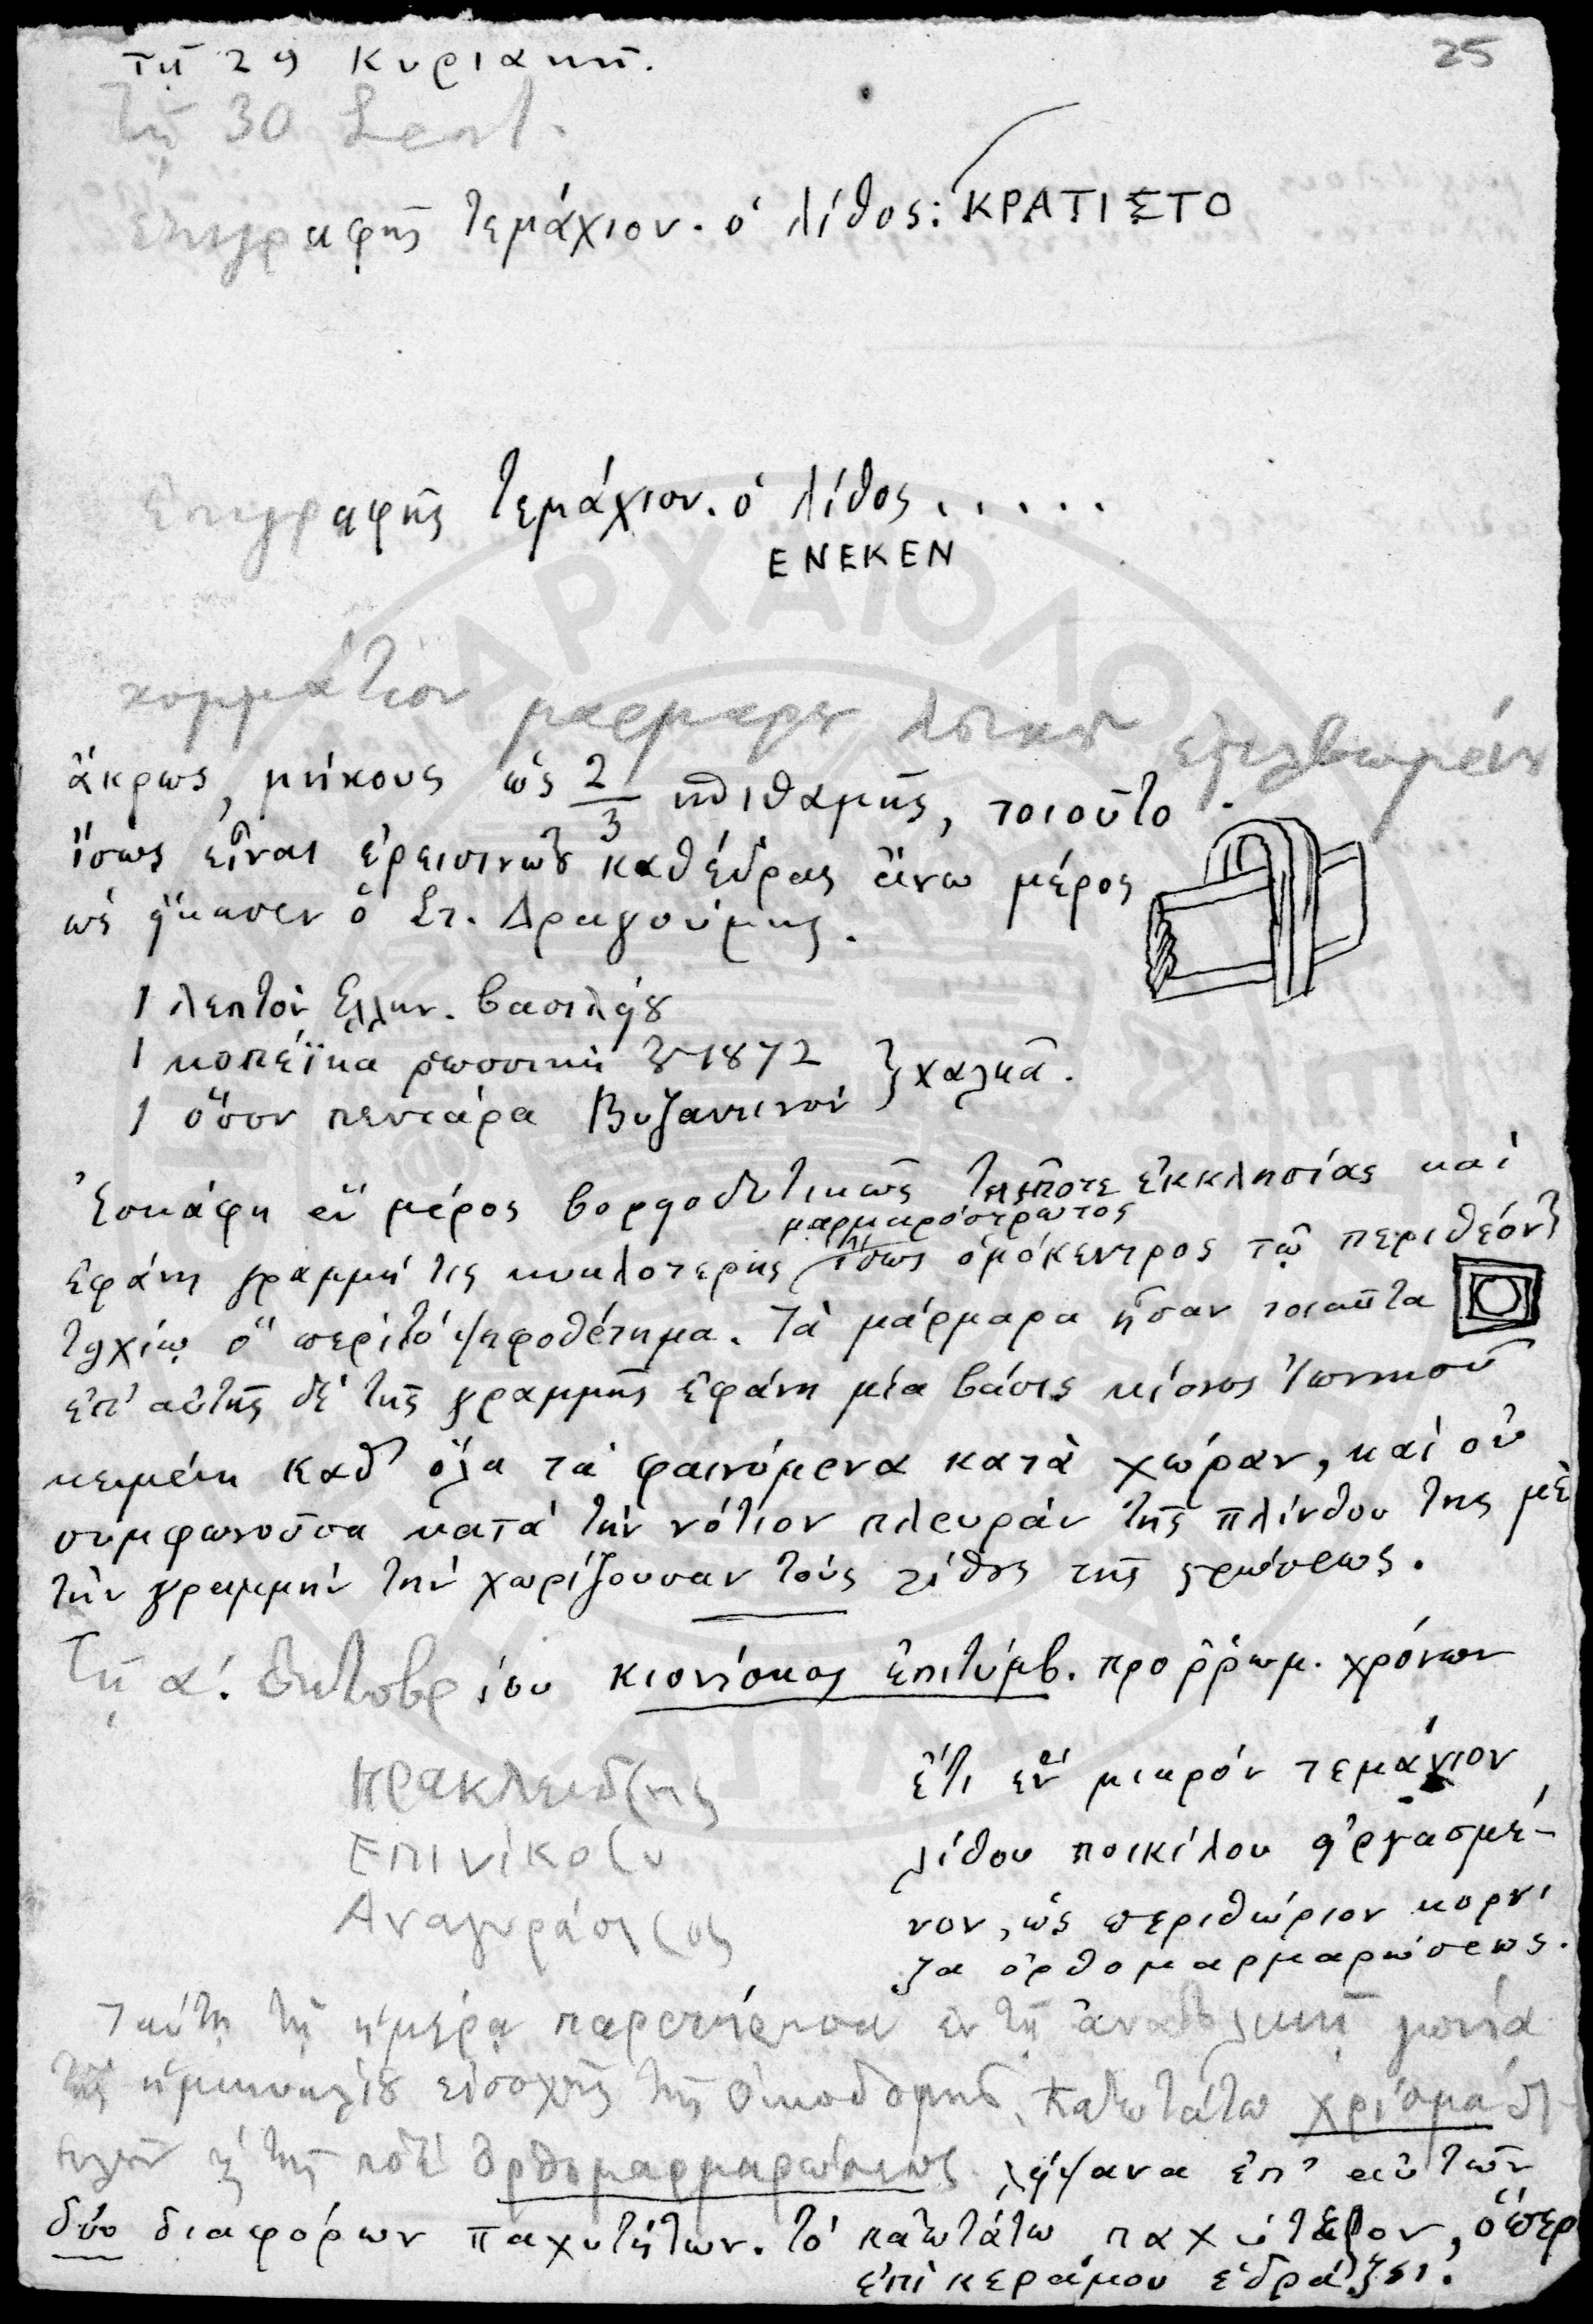 25
τῇ 29 Κυριακῇ.
Τῇ 30 Σεπτ.
ἐπιγραφῆς τεμάχιον. ὁ λίθος: ΚΡΑΤΙΣΤΟ
ἐπιγραφῆς τεμάχιον. ὁ λίθος . . . . .
ΕΝΕΚΕΝ
κομμάτιον μαρμάρου λευκοῦ
ἄκρως, μήκους ὡς 2/3 σπιθαμῆς, τοιοῦτο
ἴσως εἶναι ἐρεισινώτου καθέδρας ἄνω μέρος
ὡς ᾔκασεν ὁ Στ. Δραγούμης.
1 λεπτὸν Ἑλλην. βασιλείου
1 κοπέϊκα ῥωσσικὴ 1872
1 ὅσον πεντάρα Βυζαντινὸν } χαλκᾶ.
Ἐσκάφη ἓν μέρος βορροδυτικῶς τῆς ποτε ἐκκλησίας καὶ
μαρμαρόστρωτος
ἐφάνη γραμμή τις κυκλοτερὴς ἴσως ὁμόκεντρος τῷ περιθέοντι
τοιχίῳ ὃ περὶ τὸ ψηφοθέτημα. Τὰ μάρμαρα ἦσαν τοιαῦτα
ἐπ' αὐτῆς δὲ τῆς γραμμῆς ἐφάνη μία βάσις κίονος Ἰωνικοῦ
κειμένη καθ' ὅλα τὰ φαινόμενα κατὰ χώραν, καὶ οὐ
συμφωνοῦσα κατὰ τὴν νότιον πλευρὰν τῆς πλίνθου της μὲ
τὴν γραμμὴν τὴν χωρίζουσαν τοὺς λίθους τῆς στρώσεως.
Τῇ α'. Ὀκτωβρίου κιονίσκος ἐπιτύμβ. προρρωμ. χρόνων
Ηρακλειδ(ης
Επινίκο(υ
Αναγυράσι(ος
ἔτι ἓν μικρὸν τεμάχιον
λίθου ποικίλου εἰργασμέ-
νον, ὡς περιθώριον κορνί
ζα ὀρθομαρμαρώσεως.
Ταύτῃ τῇ ἡμέρᾳ παρετήρησα ἐν τῇ ἀνατολικῇ γωνίᾳ
τῆς ἡμικυκλίου εἰσοχῆς τῆς οἰκοδομῆς, κατωτάτω χρίσμα
τῆς ποτὲ ὀρθομαρμαρώσεως. λείψανα ἐπ' αὐτῶν
δύο διαφόρων παχυτήτων. τὸ κατωτάτω παχύτερον, ὅπερ
ἐπὶ κεράμου ἑδράζει.